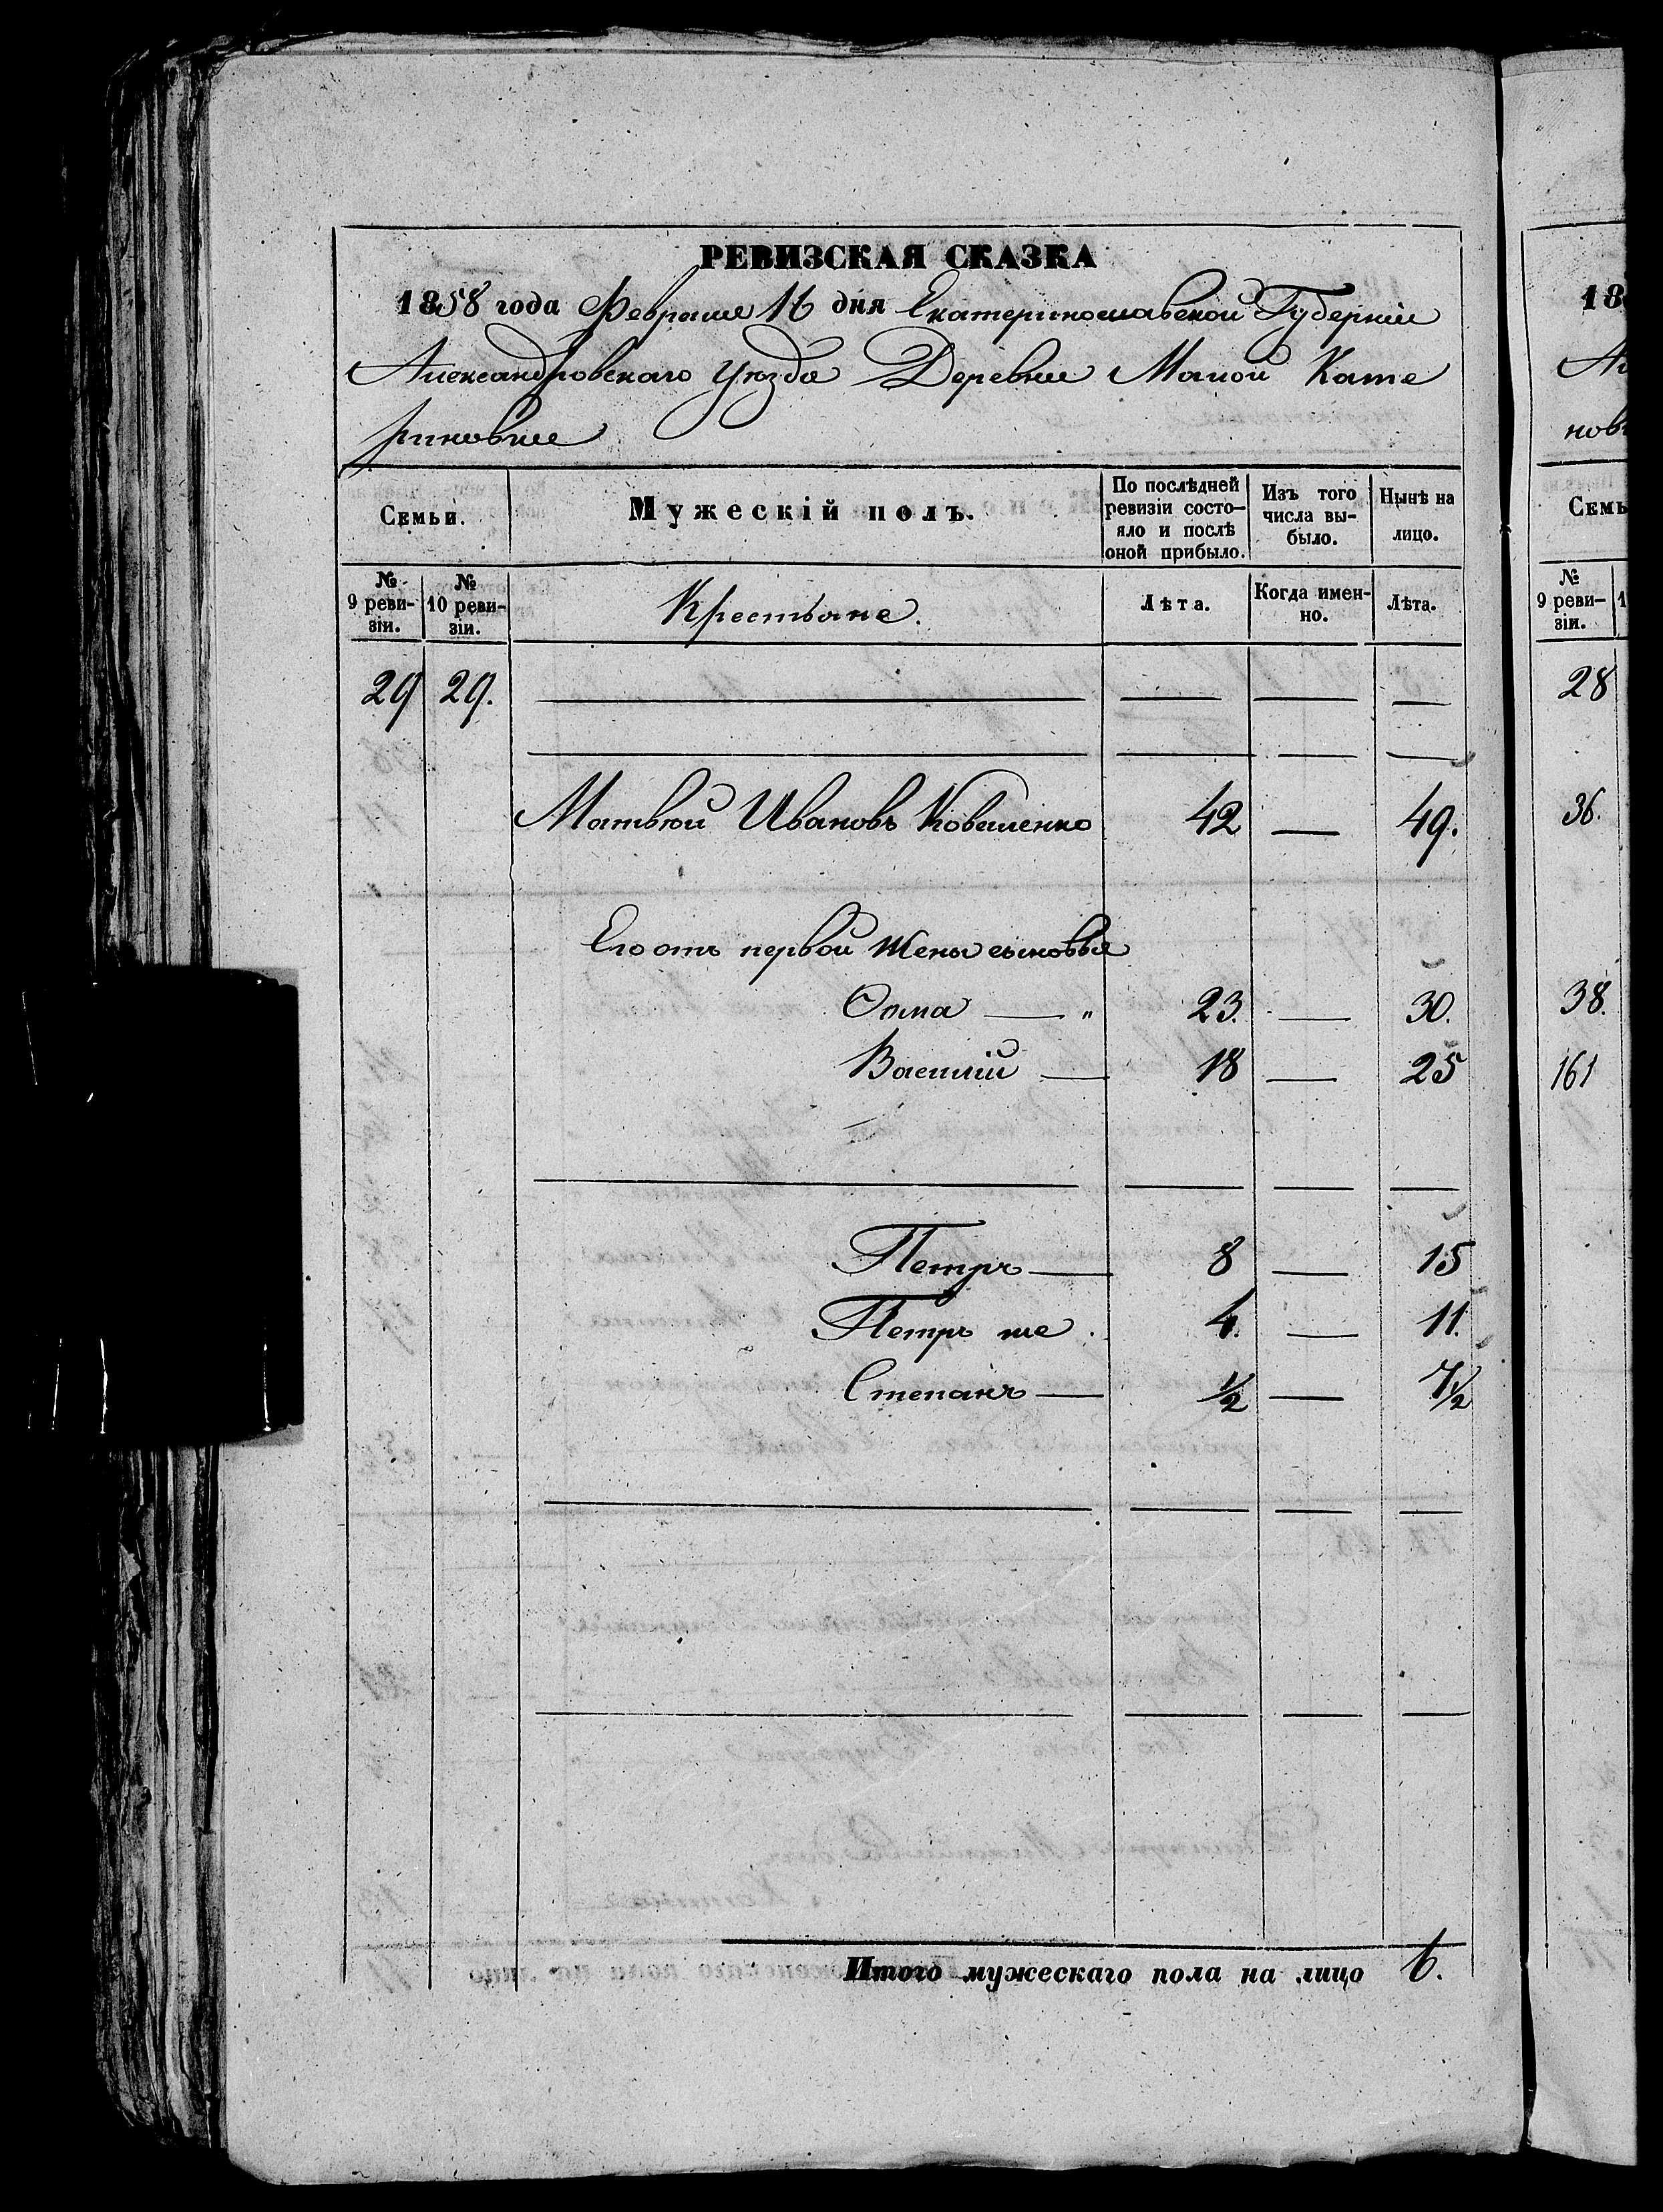 РЕВИЗСКАЯ СКАЗКА
1858 года Февраля 16 дня Екатеринославской Губерніи
Александровскаго уѣзда Деревни Малой Кате
риновки
Семьи.
Мужескій полъ.
По послѣдней ревизіи состо-яло и послѣ оной прибыло.
Изъ того числа вы-было.
Нынѣ на лицо.
№ 9 реви-зіи.
№ 10 реви-зіи.
Крестьяне.
Лѣта.
Когда имен-но.
Лѣта.
29 29.
Матвѣй Ивановъ Коваленко 42 — 49.
Его отъ первой жены сыновья
Ѳома — " 23. — 30.
Василій — 18 — 25
Петръ — 8 — 15
Петръ же . 4. — 11.
Степанъ — ½ — 7½
Итого мужескаго пола на лицо 6.
18
нов
Семь
№
9 реви-
зіи.
28
36.
38.
161